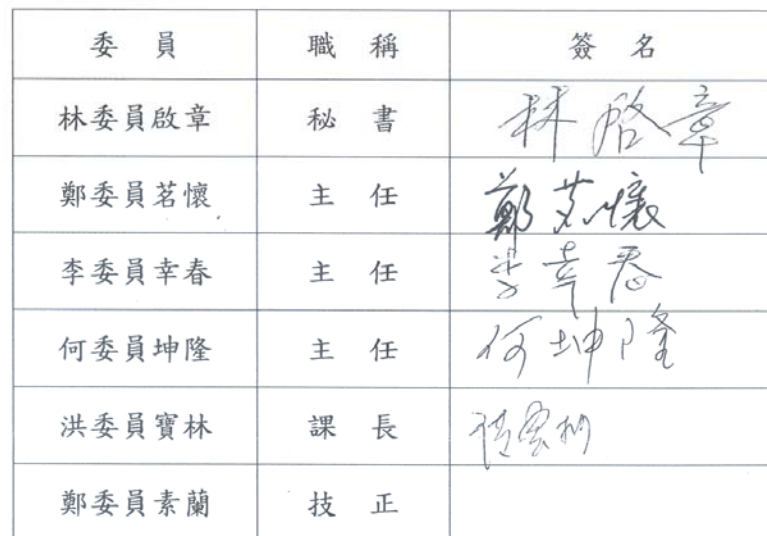 委員 職稱 簽名
林委員啟章 秘書 林啓章
鄭委員茗懷 主任 鄭茗懷
李委員幸春 主任 李幸春
何委員坤隆 主任 何坤隆
洪委員寶林 課長
鄭委員素蘭 技正